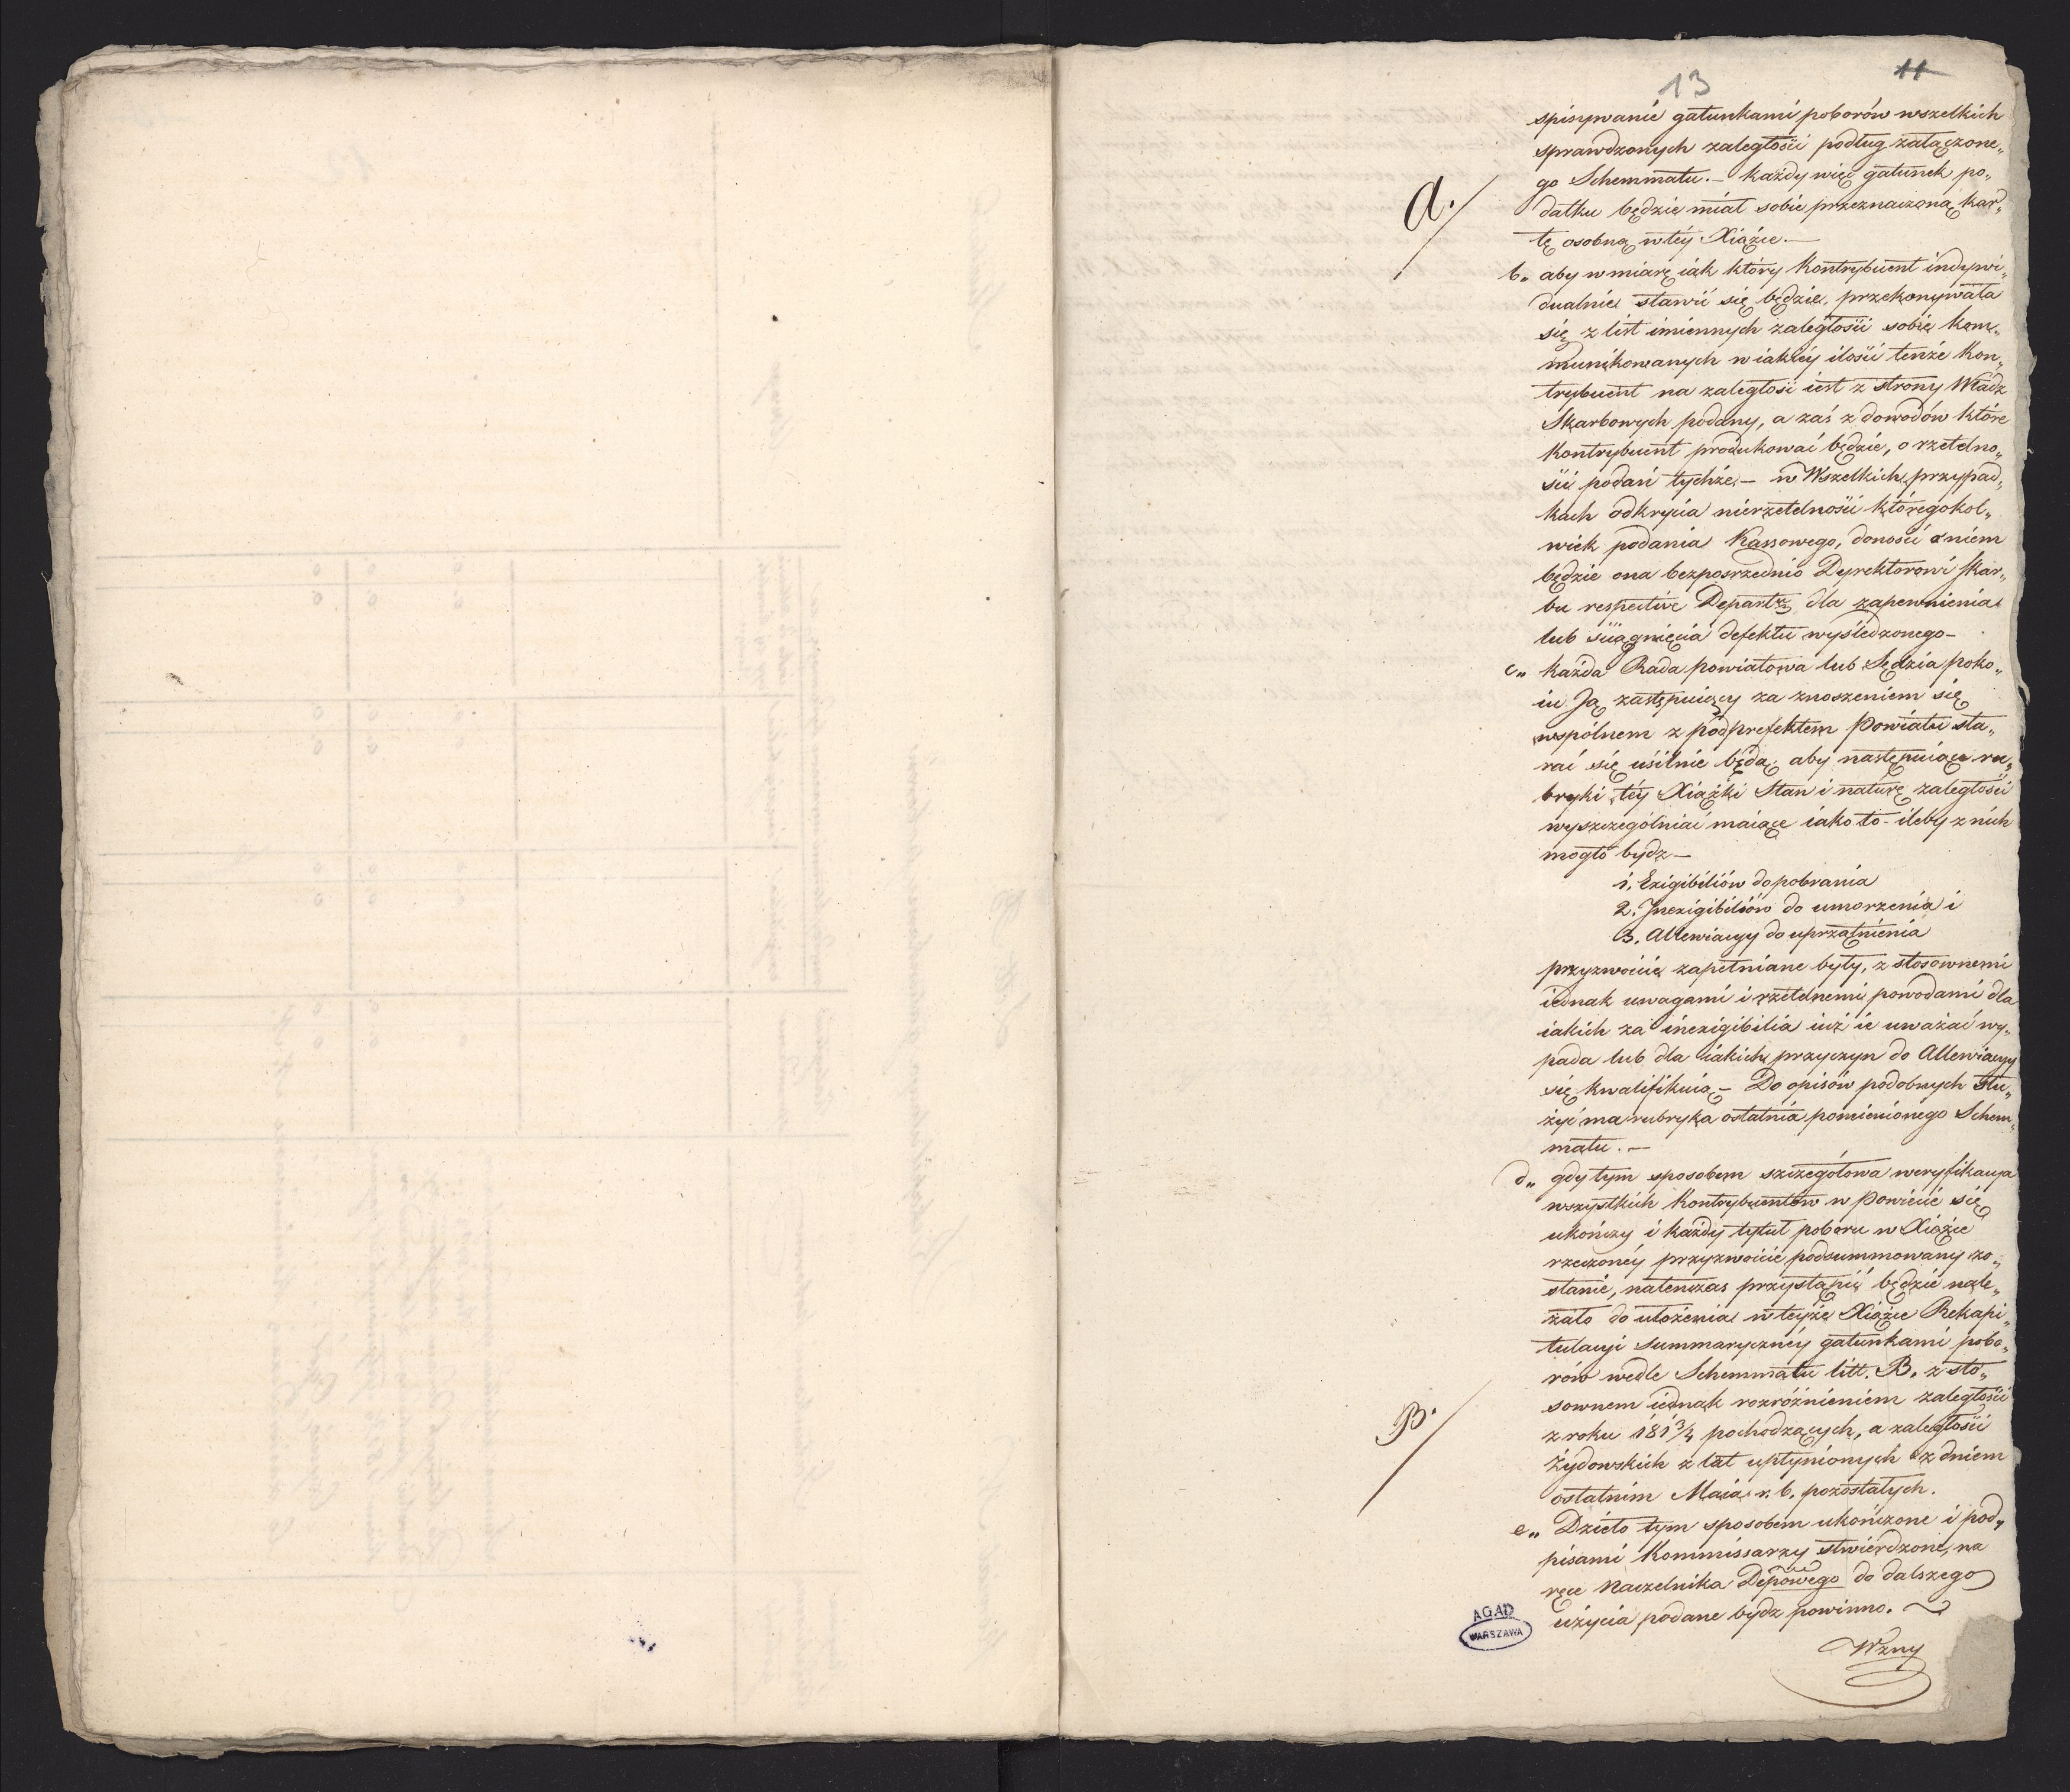 13
11
spisywanie gatunkami poborów wszelkich
sprawdzonych zaległości podług załączone„
go Schemmatu. – każdy więc gatunek po„
A./
datku będzie miał sobie przeznaczoną kar„
tę osobną w téy Xiążce. –
b„ aby w miarę iak który Kontrybuent indywi„
dualnie stawić się będzie, przekonywała
się z list imiennych zaległości sobie kom„
munikowanych w iakiéy ilości tenże Kon„
trybuent na zaległość iest z strony Władz
Skarbowych podany, a zaś z dowodów które
Kontrybuent produkować będzie, o rzetelno„
ści podań tychże. – w Wszelkich przypad„
kach odkrycia nierzetelności któregokol„
wiek podania Kassowego, donosić o niem
będzie ona bezpośrzednio Dyrektorowi Skar„
bu respective Depart. dla zapewnienia
lub ściągnięcia defektu wyśledzonego –
c„ każda Rada powiatowa lub Sędzia poko„
iu Ją zastępuiący za znoszeniem się
wspólnem z podprefektem Powiatu sta„
rać się usilnie będą, aby następuiące ru„
bryki téy Xiążki Stan i naturę zaległości
wyszczególniać maiące iako to – ileby z nich
mogło bydz –
1. Exigibiliów do pobrania
2. Inexigibiliów do umorzenia i
3. Allewiacyy do uprzątnienia
przyzwoicie zapełniane były, z stosownemi
iednak uwagami i rzetelnemi powodami dla
iakich za inexigibilia iuż ie uważać wy„
pada lub dla iakich przyczyn do Allewiacyy
się kwalifikuią – Do opisów podobnych słu„
żyć ma rubryka ostatnia pomienionego Schem„
matu. –
d„ gdy tym sposobem szczegółowa weryfikacya
wszystkich Kontrybuentów w Powiecie się
ukończy i każdy tytuł poboru w Xiążce
rzeczonéy przyzwoicie podsummowany zo„
stanie, natenczas przystąpić będzie nale„
żało do ułożenia w teyże Xiążce Rekapi„
tulacyi Summaryczney gatunkami pobo„
rów wedle Schemmatu litt. B. z sto„
B./
sownem iednak rozróżnieniem zaległości
z roku 181¾ pochodzących, a zaległości
Żydowskich z lat upłynionych z dniem
ostatnim Maia r. b. pozostałych.
e„ Dzieło tym sposobem ukończone i pod„
pisami Kommissarzy stwierdzone, na
ręce Naczelnika Depówego do dalszego
użycia podane bydz powinno. –
AGAD
WARSZAWA